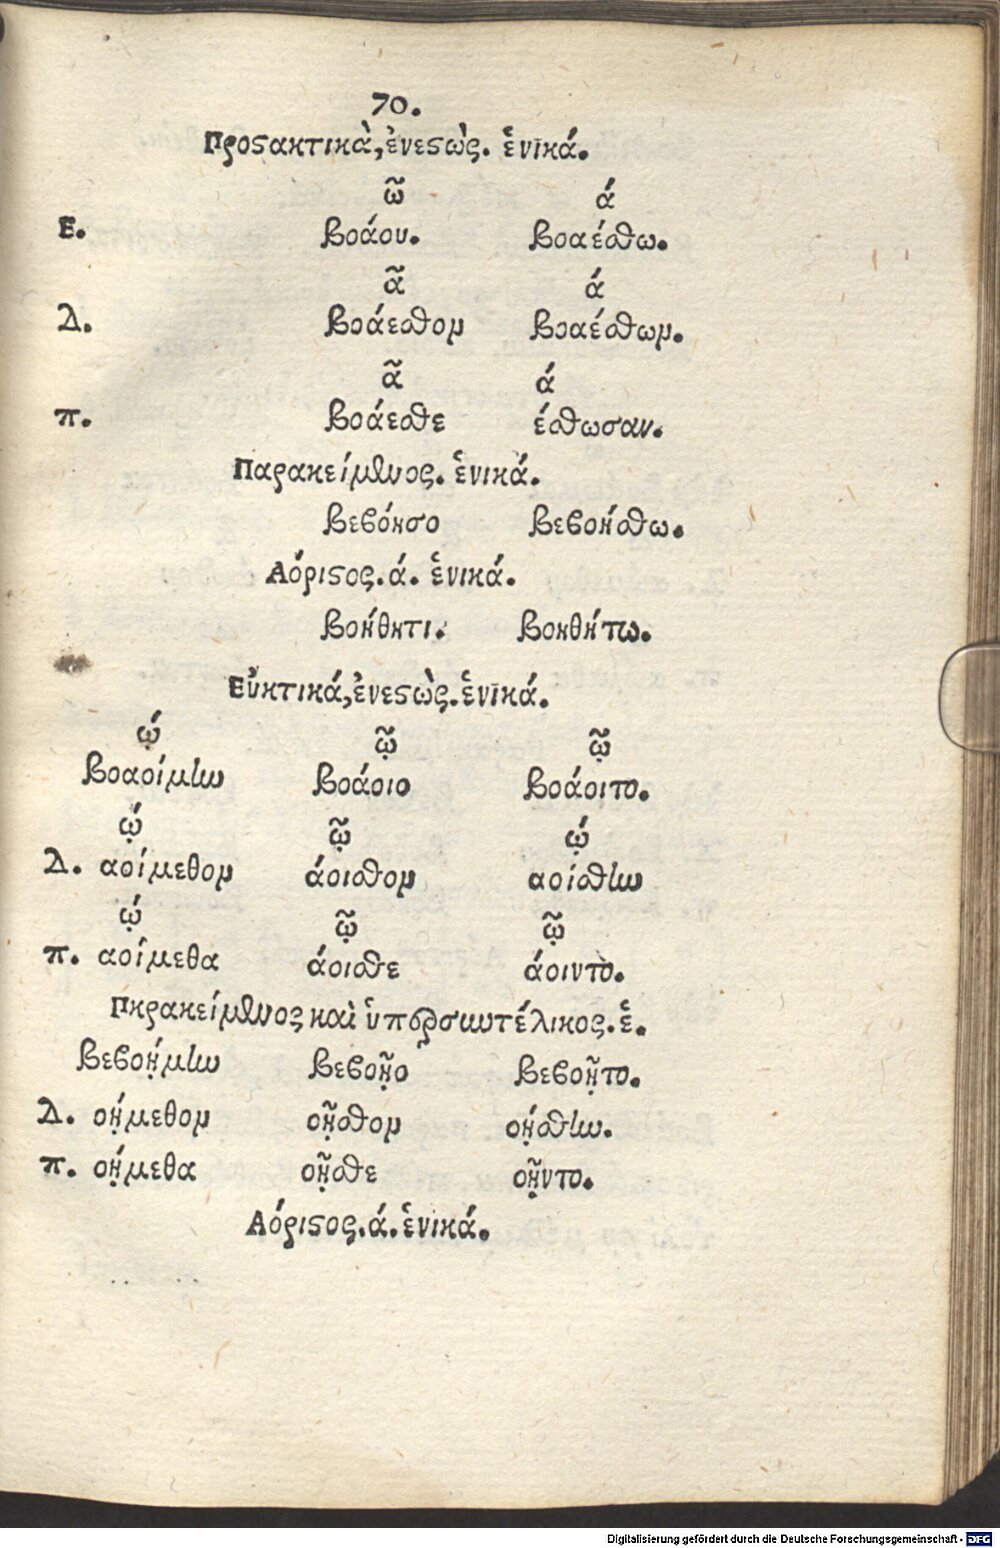 70.
Προϛακτικὰ, ἐνεϛὼς. ἑνικά.
ῶ ά
Ε. βοάου. βοαέσθω.
ᾶ ά
Δ. βοάεσθον βοαέσθων.
ᾶ ά
π. βοάεσθε έσθωσαν.
Παρακείμενος. ἑνικά.
βεβόησο βεβοήσθω.
Αόριϛος. ά. ἑνικά.
βοήθητι. βοηθήτω.
Εὐκτικά, ἐνεϛὼς. ἑνικά.
ῴ ῷ ῷ
βοαοίμην βοάοιο βοάοιτο.
ῴ ῷ ῴ
Δ. αοίμεθον άοισθον αοίσθην
ῴ ῷ ῷ
π. αοίμεθα άοισθε άοιντο.
Πκρακείμενος καὶ ὑπερσυντέλικος. ἑ.
βεβοῄμην βεβοῇο βεβοῇτο.
Δ. οῄμεθον οῇσθον οῄσθην.
π. οῄμεθα οῇσθε οῇντο.
Αόριϛος. ά. ἑνικά.
Digitalisierung gefördert durch die Deutsche Forschungsgemeinschaft - DFG